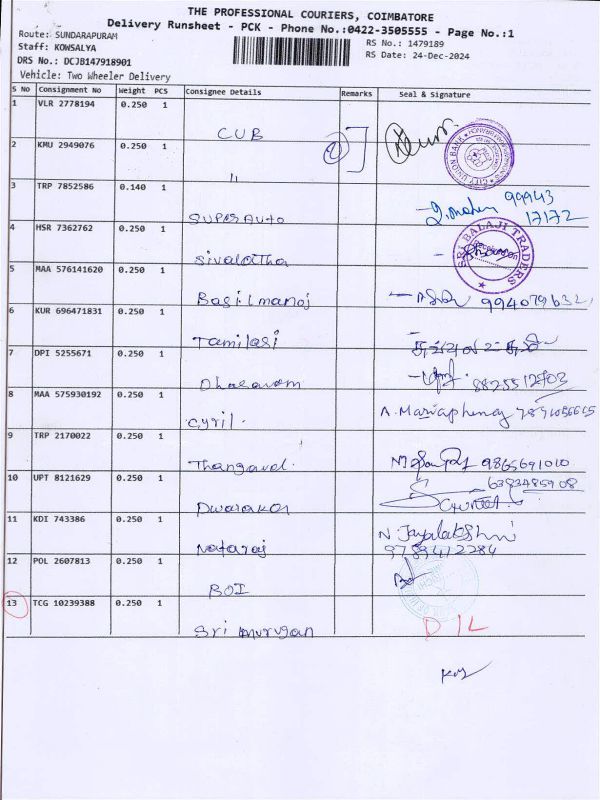 THE PROFESSIONAL COURIERS, COIMBATORE
Delivery Runsheet - PCK - Phone No.:0422-3505555 - Page No.:1
Route: SUNDARAPURAM
Staff: KOWSALYA
DRS No.: DCJB147918901
Vehicle: Two Wheeler Delivery
RS No.: 1479189
RS Date: 24-Dec-2024
S No Consignment No Weight PCS Consignee Details Remarks Seal & Signature
1 VLR 2778194 0.250 1 CUB
2 KMU 2949076 0.250 1 " 2
CITY UNION BANK
3 TRP 7852586 0.140 1 SUPAS AUTO 99943
17172
4 HSR 7362762 0.250 1 Sivalatha
SRI BALAJI TRADERS
5 MAA 576141620 0.250 1 Basilmanoj
6 KUR 696471831 0.250 1 Tamilasi
7 DPI 5255671 0.250 1 Dhasavam 8825512703
8 MAA 575930192 0.250 1 Cyril. A. Mariapheno
9 TRP 2170022 0.250 1 Thangavel. 9865691010
10 UPT 8121629 0.250 1 Dwaraka 6383485908
11 KDI 743386 0.250 1 Nataraj N. Jayalakshmi
9789412284
12 POL 2607813 0.250 1 BOI
13 TCG 10239388 0.250 1 Sri murugan D/L